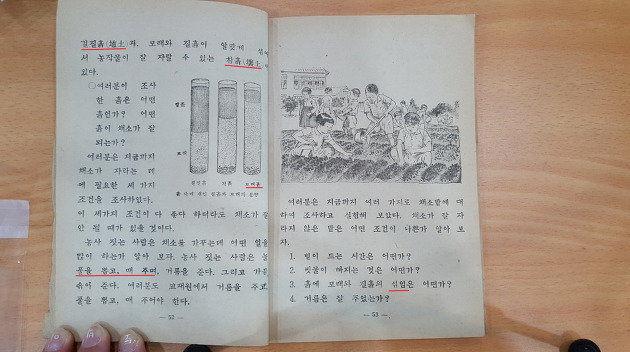 걸질흙(壚土)과, 모래와 질흙이 알맞게 섞여
서 농작물이 잘 자랄 수 있는 참흙(壤土)이
있다.
○여러분이 조사
한 흙은 어떤
흙인가? 어떤
흙이 채소가 잘
되는가?
여러분은 지금까지
채소가 자라는 데
에 필요한 세 가지
조건을 조사하였다.
질흙
모래
질땅흙 참흙 모래흙
흙 속에 섞인 질흙과 모래의 분량
이 세가지 조건이 다 좋다 하더라도 채소가 잘
안 될 때가 있을 것이다.
농사 짓는 사람은 채소를 가꾸는데 어떤 일을
많이 하는가 알아 보자. 농사 짓는 사람은 늘
풀을 뽑고, 매 주며, 거름을 준다. 그리고 가끔
솎아 준다. 여러분도 교재원에서 거름을 주고,
풀을 뽑고, 매 주어야 한다.
— 52 —
여러분은 지금까지 여러 가지로 채소밭에 대
하여 조사하고 실험해 보았다. 채소가 잘 자
라지 않은 밭은 어떤 조건이 나쁜가 알아 보
자.
1. 빛이 드는 시간은 어떤가?
2. 빗물이 빠지는 것은 어떤가?
3. 흙에 모래와 질흙의 섞임은 어떤가?
4. 거름은 잘 주었는가?
— 53 —